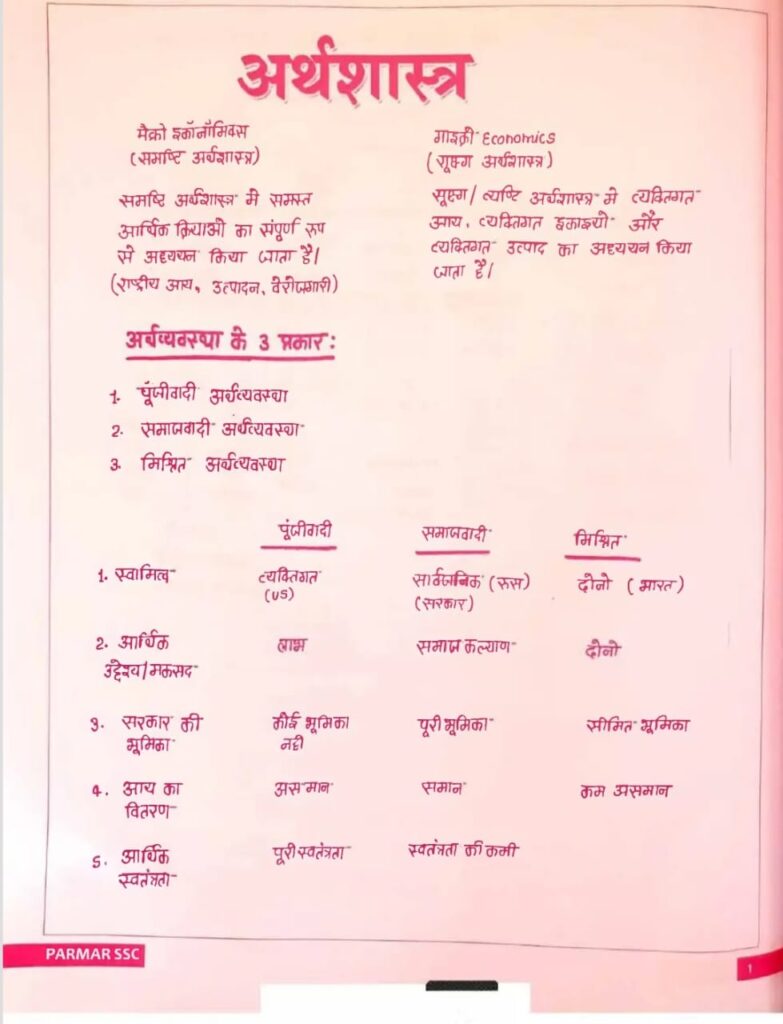 अर्थशास्त्र
मैक्रो इकॉनॉमिक्स
(समष्टि अर्थशास्त्र)
समष्टि अर्थशास्त्र में समस्त
आर्थिक क्रियाओं का संपूर्ण रूप
से अध्ययन किया जाता है।
(राष्ट्रीय आय, उत्पादन, बेरोजगारी)
माइक्रो Economics
(सूक्ष्म अर्थशास्त्र)
सूक्ष्म/व्यष्टि अर्थशास्त्र में व्यक्तिगत
आय, व्यक्तिगत इकाइयो और
व्यक्तिगत उत्पाद का अध्ययन किया
जाता है।
अर्थव्यवस्था के 3 प्रकार:
1. पूंजीवादी अर्थव्यवस्था
2. समाजवादी अर्थव्यवस्था
3. मिश्रित अर्थव्यवस्था
पूंजीवादी समाजवादी मिश्रित
1. स्वामित्व व्यक्तिगत सार्वजनिक (रूस) दोनो (भारत)
(US) (सरकार)
2. आर्थिक लाभ समाज कल्याण दोनो
उद्देश्य/मकसद
3. सरकार की कोई भूमिका पूरी भूमिका सीमित भूमिका
भूमिका नही
4. आय का असमान समान कम असमान
वितरण
5. आर्थिक पूरी स्वतंत्रता स्वतंत्रता की कमी
स्वतंत्रता
PARMAR SSC
1